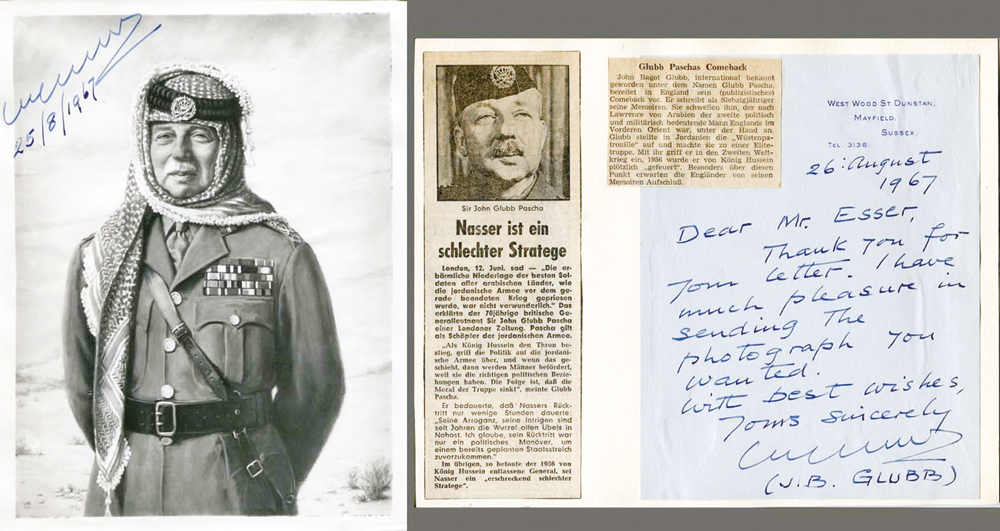 25/8/1967
Sir John Glubb Pascha
Nasser ist ein
schlechter Stratege
London, 12. Juni. sad — „Die er-
bärmliche Niederlage der besten Sol-
daten aller arabischen Länder, wie
die jordanische Armee vor dem ge-
rade beendeten Krieg gepriesen
wurde, war nicht verwunderlich.“ Das
erklärte der 70jährige britische Ge-
neralleutnant Sir John Glubb Pascha
einer Londoner Zeitung. Pascha gilt
als Schöpfer der jordanischen Armee.
„Als König Hussein den Thron be-
stieg, griff die Politik auf die jordani-
sche Armee über, und wenn das ge-
schieht, dann werden Männer befördert,
weil sie die richtigen politischen Bezie-
hungen haben. Die Folge ist, daß die
Moral der Truppe sinkt“, meinte Glubb
Pascha.
Er bedauerte, daß Nassers Rück-
tritt nur wenige Stunden dauerte:
„Seine Arroganz, seine Intrigen sind
seit Jahren die Wurzel allen Übels in
Nahost. Ich glaube, sein Rücktritt war
nur ein politisches Manöver, um
einem bereits geplanten Staatsstreich
zuvorzukommen.“
Im übrigen, so betonte der 1956 von
König Hussein entlassene General, sei
Nasser ein „erschreckend schlechter
Stratege“.
Glubb Paschas Comeback
John Bagot Glubb, international bekannt
geworden unter dem Namen Glubb Pascha,
bereitet in England sein (publizistisches)
Comeback vor. Er schreibt als Siebzigjähriger
seine Memoiren. Sie schwellen ihm, der nach
Lawrence von Arabien der zweite politisch
und militärisch bedeutende Mann Englands im
Vorderen Orient war, unter der Hand an.
Glubb stellte in Jordanien die „Wüstenpa-
trouille“ auf und machte sie zu einer Elite-
truppe. Mit ihr griff er in den Zweiten Welt-
krieg ein, 1956 wurde er von König Hussein
plötzlich „gefeuert“. Besonders über diesen
Punkt erwarten die Engländer von seinen
Memoiren Aufschluß.
WEST WOOD ST. DUNSTAN,
MAYFIELD.
SUSSEX.
TEL. 3136.
26. August
1967
Dear Mr. Esser,
Thank you for
your letter. I have
much pleasure in
sending the
photograph you
wanted.
With best wishes,
Yours sincerely
(J.B. GLUBB)